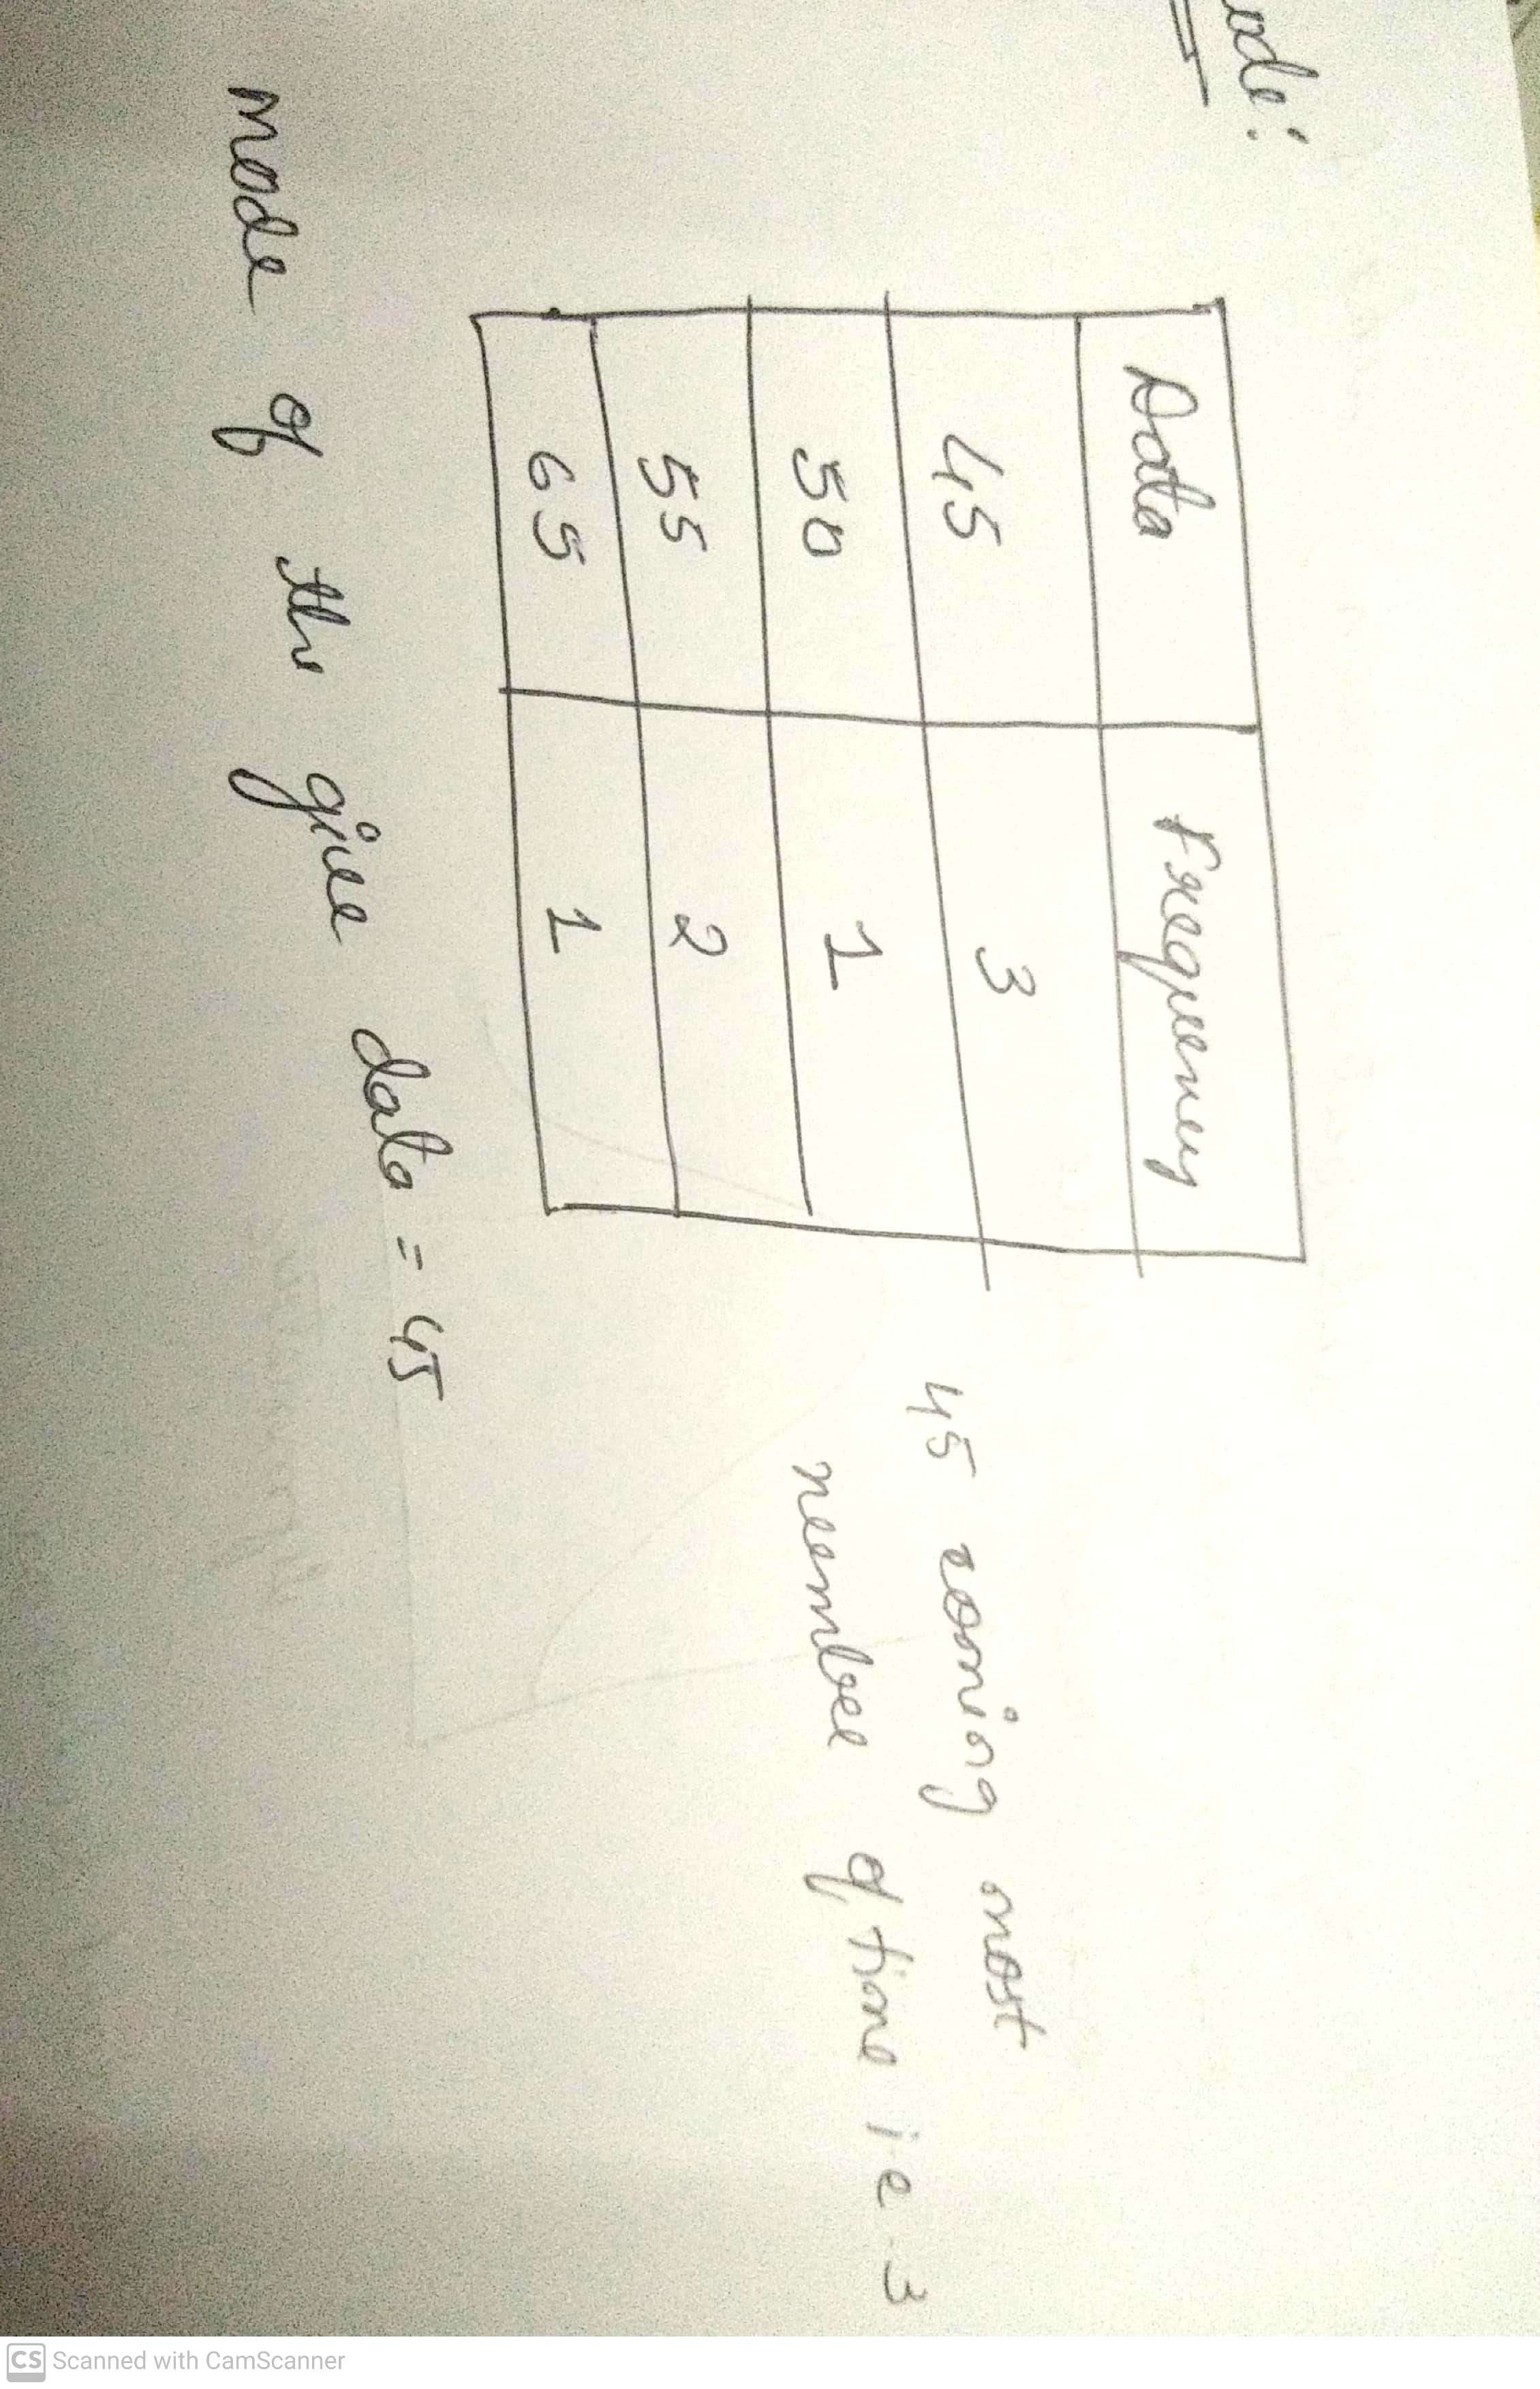 ode:
Data Frequency
45 3
50 1
55 2
65 1
45 coming most
number of time i.e. 3
mode of the give data = 45
CS Scanned with CamScanner